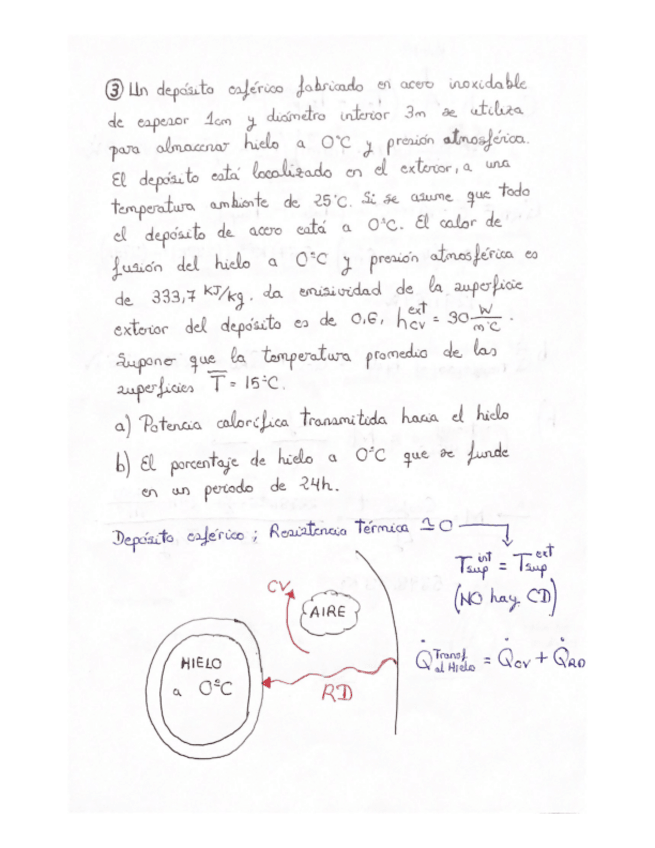 ③ Un depósito esférico fabricado en acero inoxidable
de espesor 1cm y diámetro interior 3m se utiliza
para almacenar hielo a 0°C y presión atmosférica.
El depósito está localizado en el exterior, a una
temperatura ambiente de 25°C. Si se asume que todo
el depósito de acero está a 0°C. El calor de
fusión del hielo a 0°C y presión atmosférica es
de 333,7 KJ/kg. La emisividad de la superficie
exterior del depósito es de 0,6, h_cv^ext = 30 W/m°C.
Suponer que la temperatura promedio de las
superficies T̄ = 15°C.
a) Potencia calorífica transmitida hacia el hielo
b) El porcentaje de hielo a 0°C que se funde
en un periodo de 24h.
Depósito esférico ; Resistencia térmica ≃ 0
T_sup^int = T_sup^ext
(NO hay CD)
Q̇_al Hielo^Transf = Q̇_CV + Q̇_RD
CV
AIRE
HIELO
a 0°C
RD